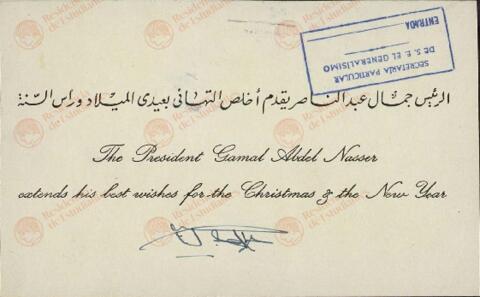 SECRETARIA PARTICULAR
DE S. E. EL GENERALISIMO
ENTRADA
الرئيس جمال عبد الناصر يقدم أخلص التهاني بعيدي الميلاد ورأس السنة
The President Gamal Abdel Nasser
extends his best wishes for the Christmas & the New Year
Residencia de Estudiantes